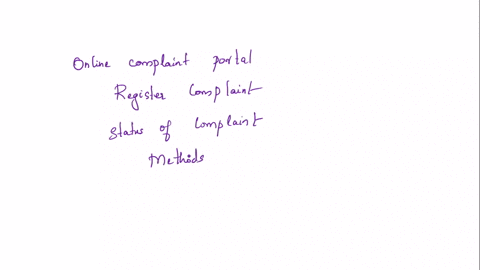 Online complaint portal
Register Complaint
Status of Complaint
Methods